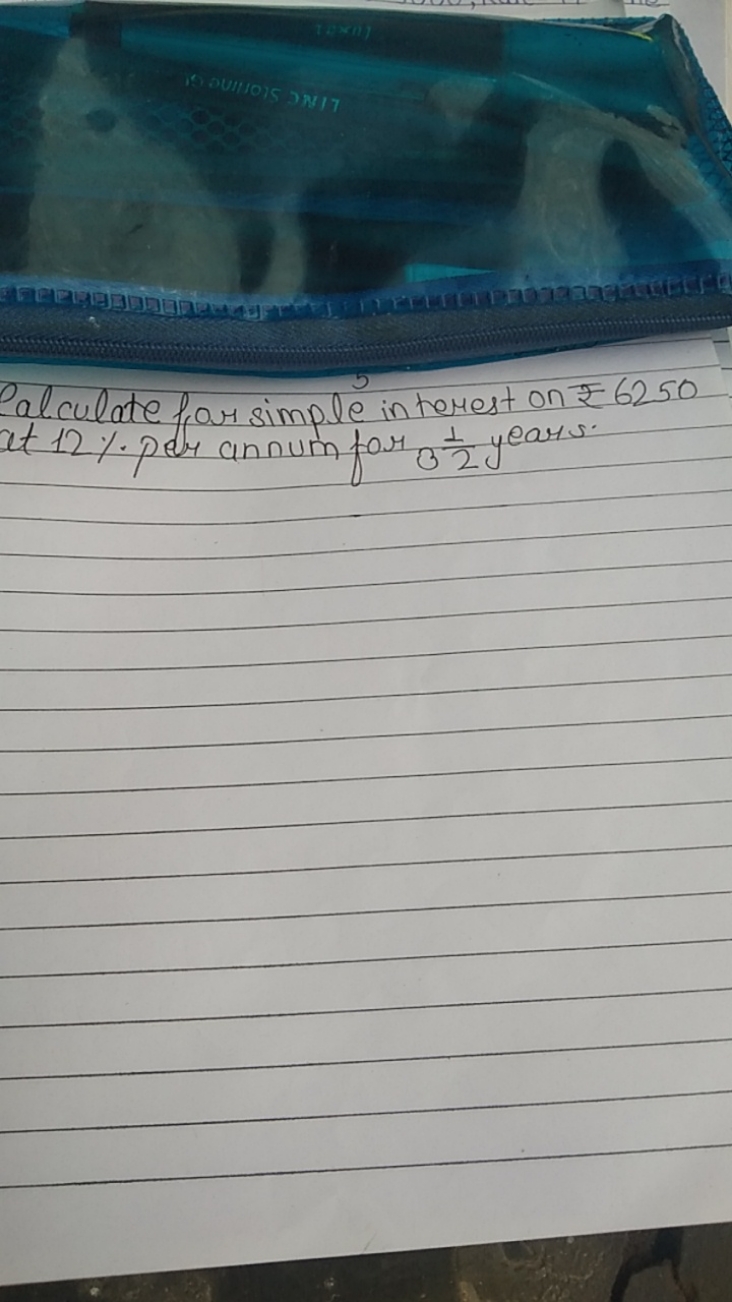 LUXOR
LINC Starline Gl
5
Calculate for simple interest on ₹ 6250
at 12 %. per annum for 3 1/2 years.